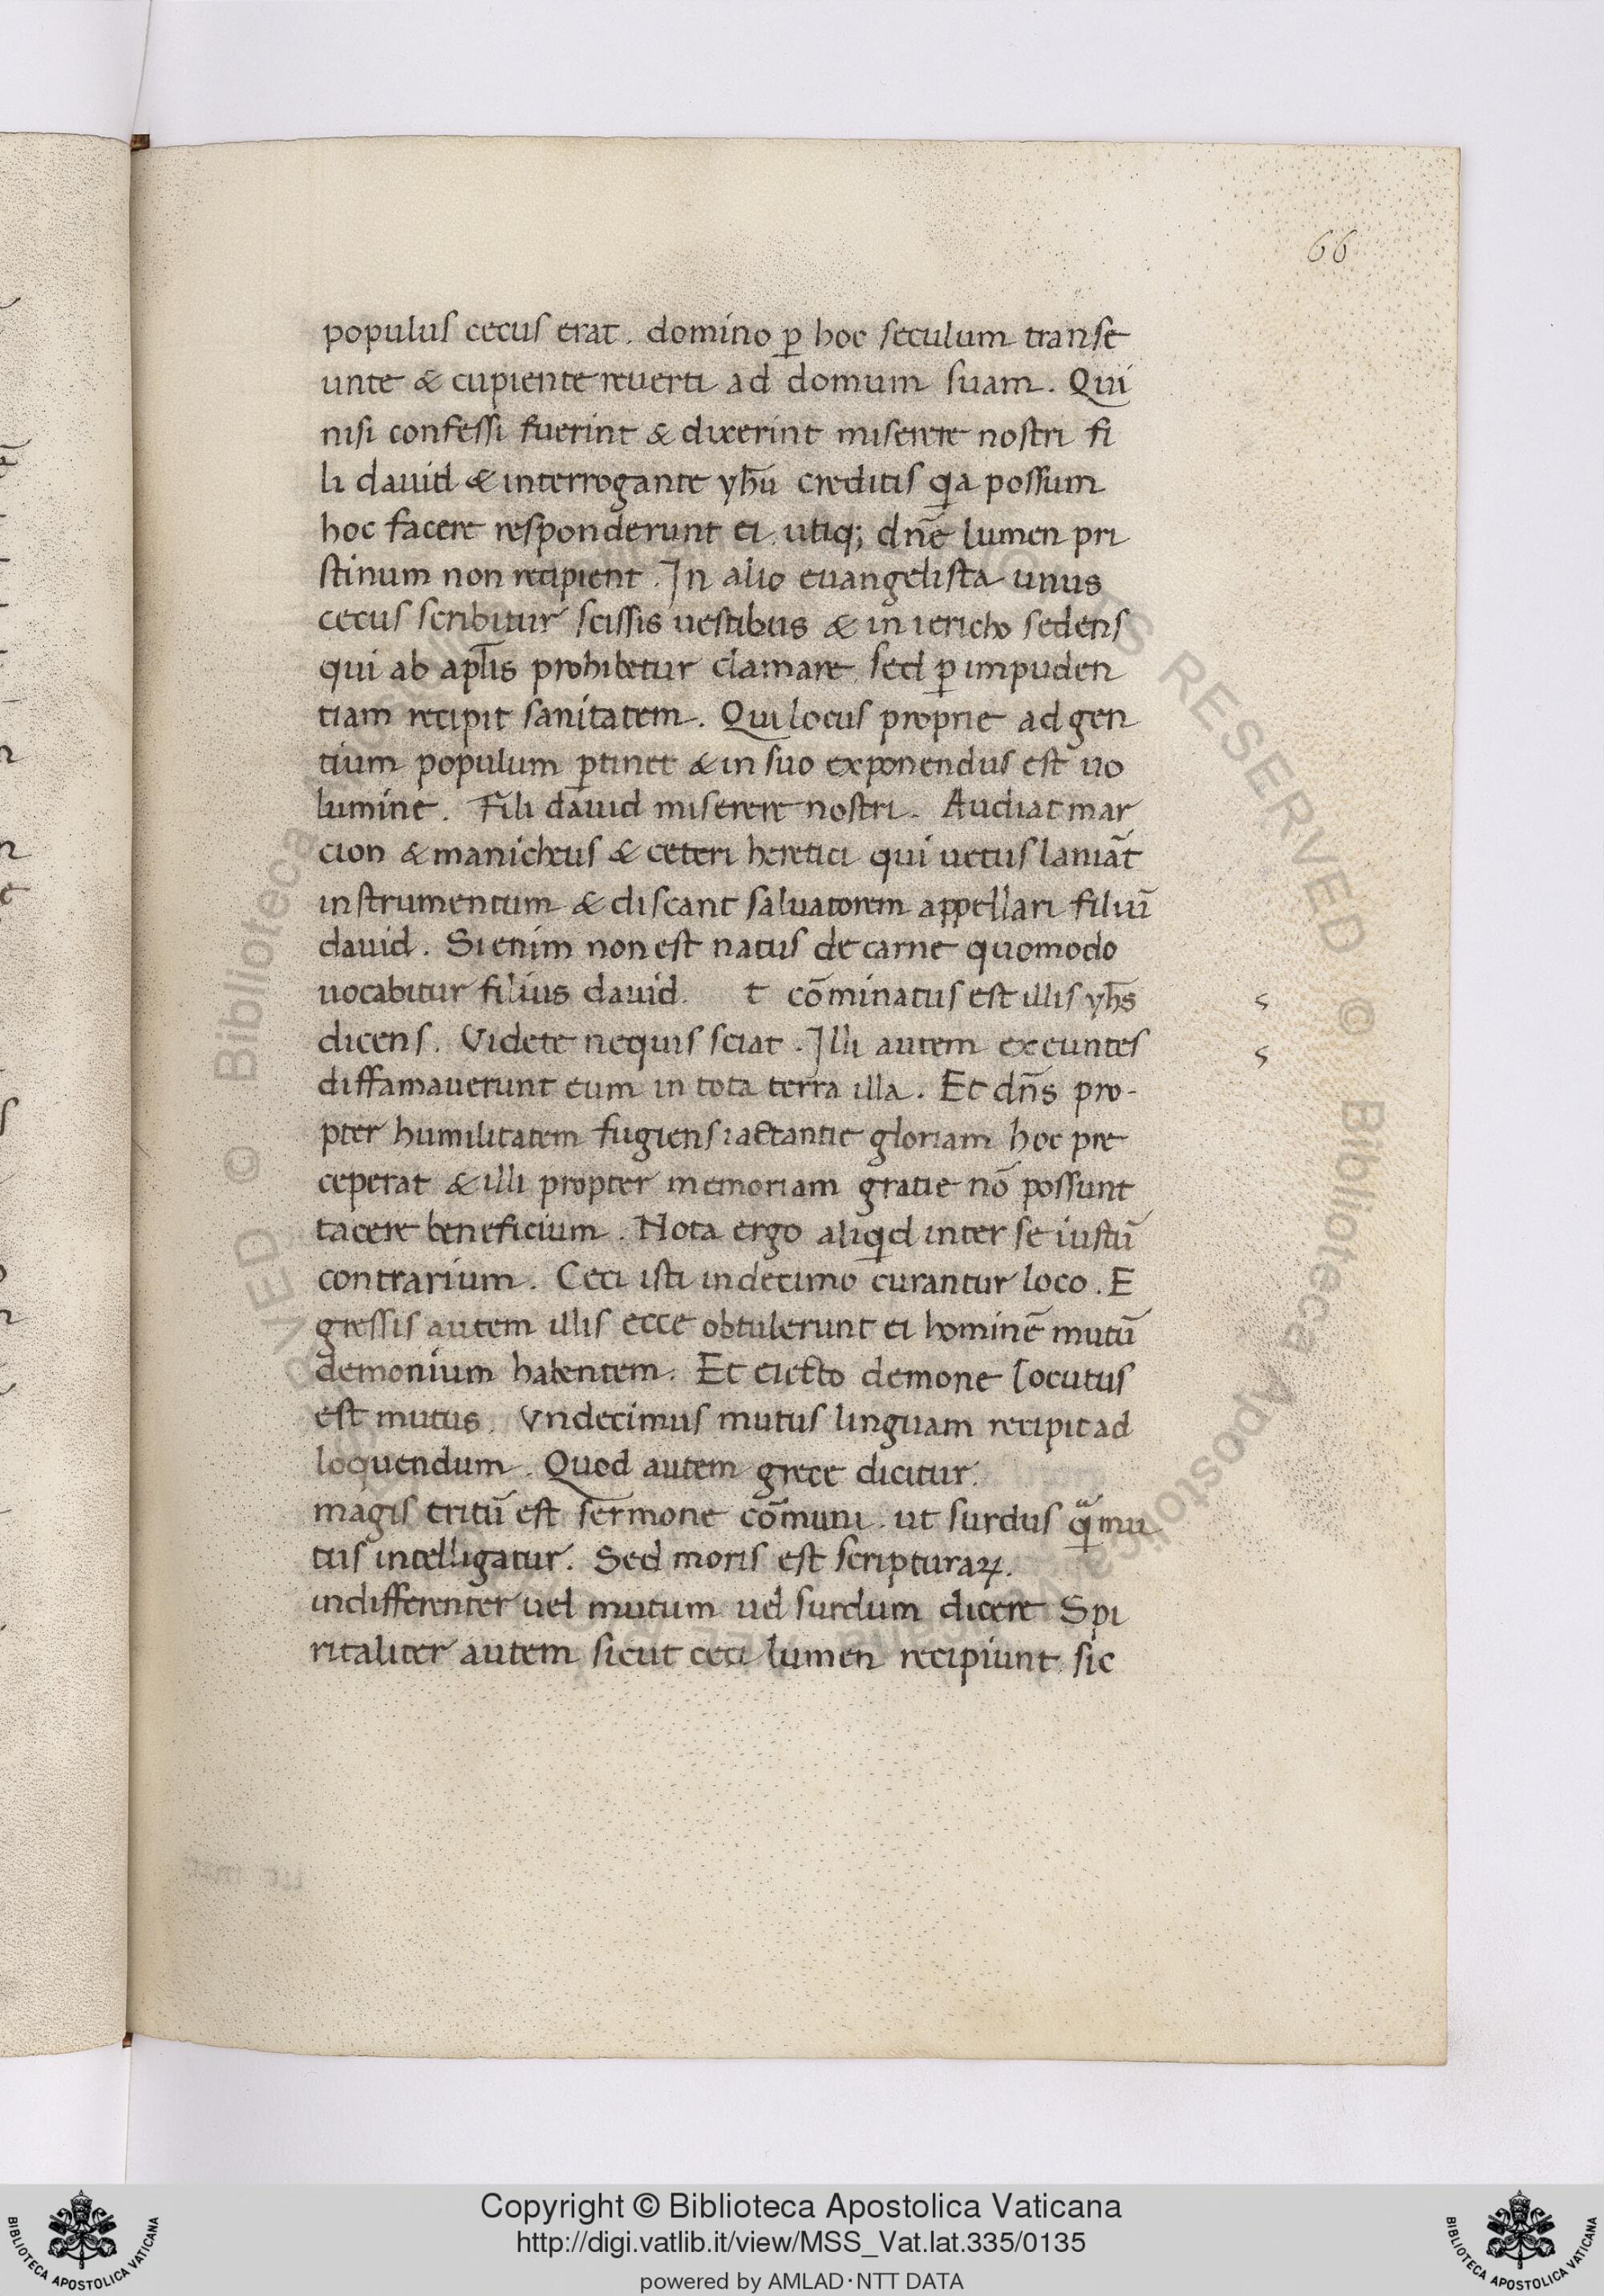 66
populus cecus erat. domino ꝑ hoc seculum transe
unte & cupiente reuerti ad domum suam. Qui
nisi confessi fuerint & dixerint miserere nostri fi
li dauid & interrogante yh̄u creditis qͥa possum
hoc facere responderunt ei. utiq; dn̄e lumen pri
stinum non recipient. In alio euangelista unus
cecus scribitur scissis uestibus & in iericho sedens
qui ab apl̄is prohibetur clamare sed ꝑ impuden
tiam recipit sanitatem. Qui locus proprie ad gen
tium populum ꝑtinet & in suo exponendus est uo
lumine. Fili dauid miserere nostri. Audiat mar
cion & manicheus & ceteri heretici qui uetus laniāt
instrumentum & discant saluatorem appellari filiū
dauid. Si enim non est natus de carne quomodo
uocabitur filius dauid. t cōminatus est illis yh̄s
dicens. Videte nequis sciat. Illi autem exeuntes
diffamauerunt eum in tota terra illa. Et dn̄s pro-
pter humilitatem fugiens iactantie gloriam hoc pre
ceperat & illi propter memoriam gratie nō possunt
tacere beneficium. Nota ergo aliqͥd inter se iustū
contrarium. Ceci isti in decimo curantur loco. E
gressis autem illis ecce obtulerunt ei hominē mutū
demonium habentem. Et eiecto demone locutus
est mutus. Vndecimus mutus linguam recipit ad
loquendum. Quod autem grece dicitur.
magis tritū est sermone cōmuni. ut surdus qͣ̄ mu
tus intelligatur. Sed moris est scripturaꝝ.
indifferenter uel mutum uel surdum dicere Spi
ritaliter autem sicut ceci lumen recipiunt sic
Copyright © Biblioteca Apostolica Vaticana
http://digi.vatlib.it/view/MSS_Vat.lat.335/0135
powered by AMLAD·NTT DATA
BIBLIOTECA APOSTOLICA VATICANA
BIBLIOTECA APOSTOLICA VATICANA